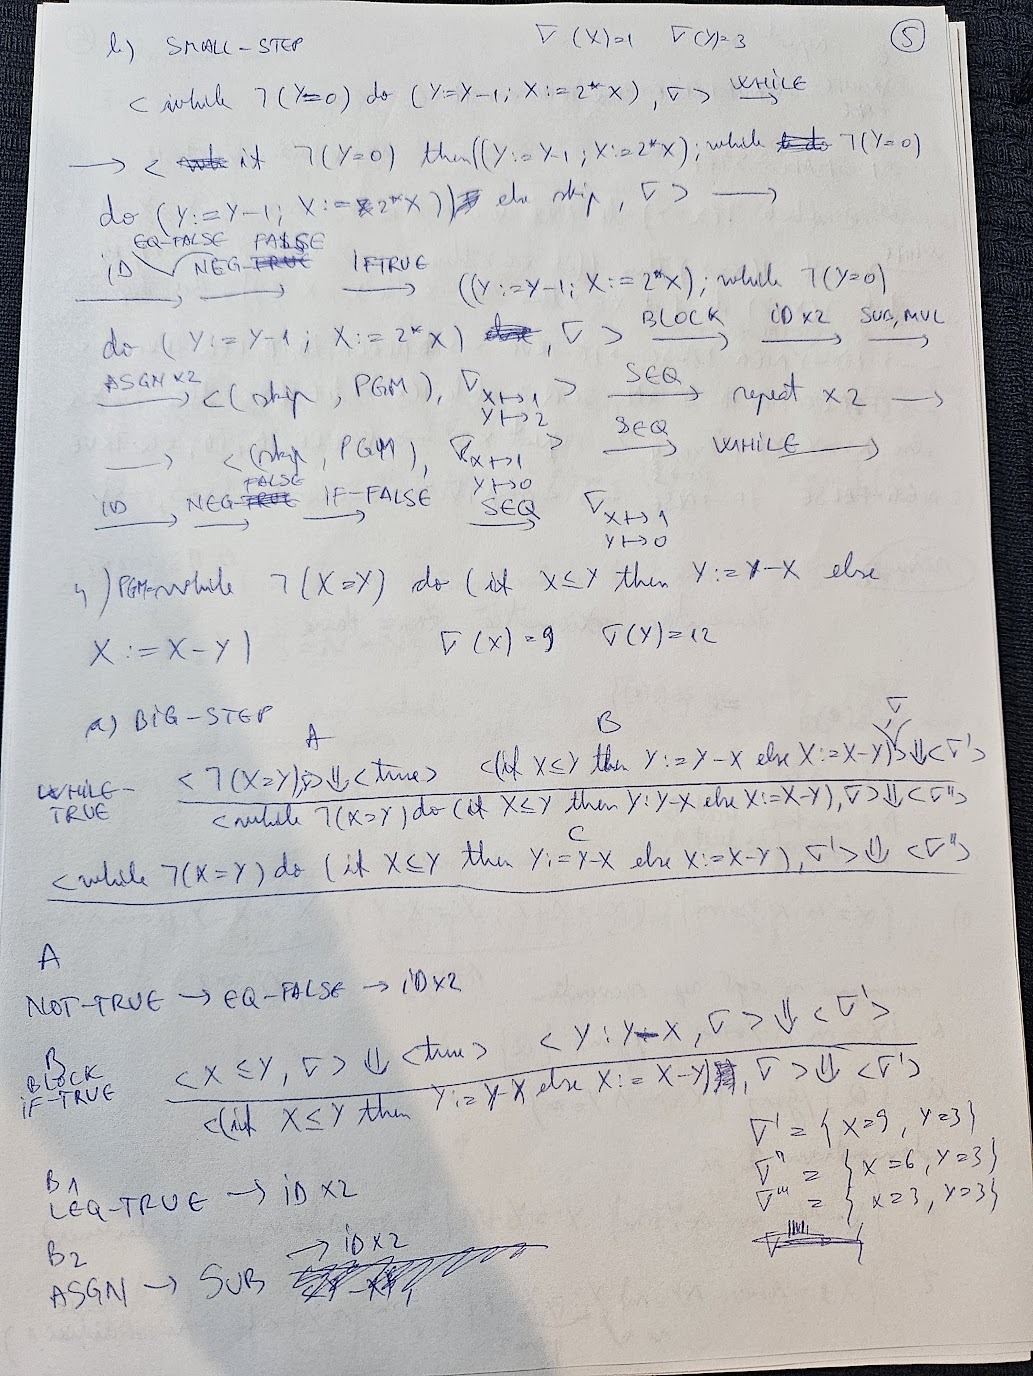 b) SMALL-STEP ∇(X)=1 ∇(Y)=3 5
< while ¬(Y=0) do (Y:=Y-1; X:=2*X), ∇ > WHILE →
→ < if ¬(Y=0) then((Y:=Y-1; X:=2*X); while ¬(Y=0)
do (Y:=Y-1; X:=2*X)) else skip, ∇ > →
EQ-FALSE FALSE
iD → NEG- → IFTRUE → ((Y:=Y-1; X:=2*X); while ¬(Y=0)
do (Y:=Y-1; X:=2*X) , ∇ > BLOCK → iD x2 → SUB, MUL →
ASGN x2 → <(skip, PGM), ∇ X↦1 Y↦2 > SEQ → repeat x2 →
→ <(skip, PGM), ∇ X↦1 Y↦0 > SEQ → WHILE →
FALSE
iD → NEG- → IF-FALSE → SEQ → ∇ X↦1 Y↦0
4) PGM=while ¬(X=Y) do (if X≤Y then Y:=Y-X else
X:=X-Y) ∇(X)=9 ∇(Y)=12
a) BIG-STEP
A B ∇
WHILE-TRUE <¬(X=Y),∇>⇓<true> <(if X≤Y then Y:=Y-X else X:=X-Y)>⇓<∇'>
<while ¬(X=Y) do (if X≤Y then Y:Y-X else X:=X-Y),∇>⇓<∇">
C
<while ¬(X=Y) do (if X≤Y then Y:=Y-X else X:=X-Y),∇'>⇓<∇">
A
NOT-TRUE → EQ-FALSE → iDx2
B
BLOCK
iF-TRUE
<X≤Y,∇>⇓<true> <Y:Y-X,∇>⇓<∇'>
<(if X≤Y then Y:=Y-X else X:=X-Y) , ∇>⇓<∇'>
∇' = {X=9, Y=3}
∇" = {X=6, Y=3}
∇"' = {X=3, Y=3}
B1
LEQ-TRUE → iD x2
B2
ASGN → SUB → iDx2